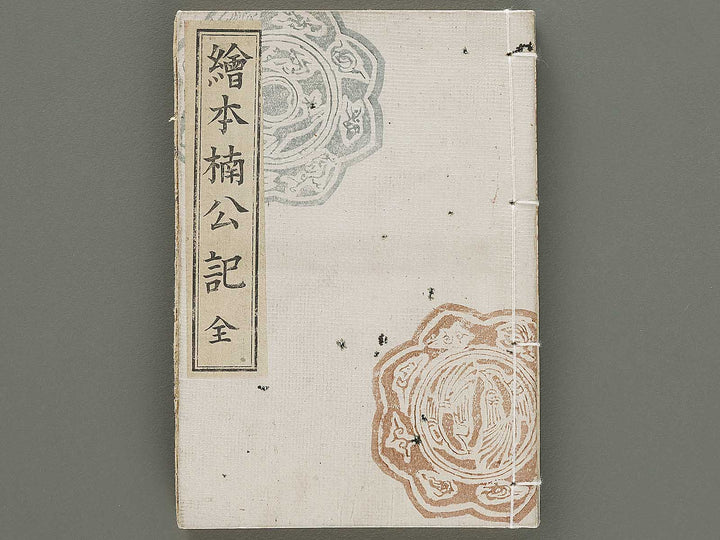 繪本楠公記 全